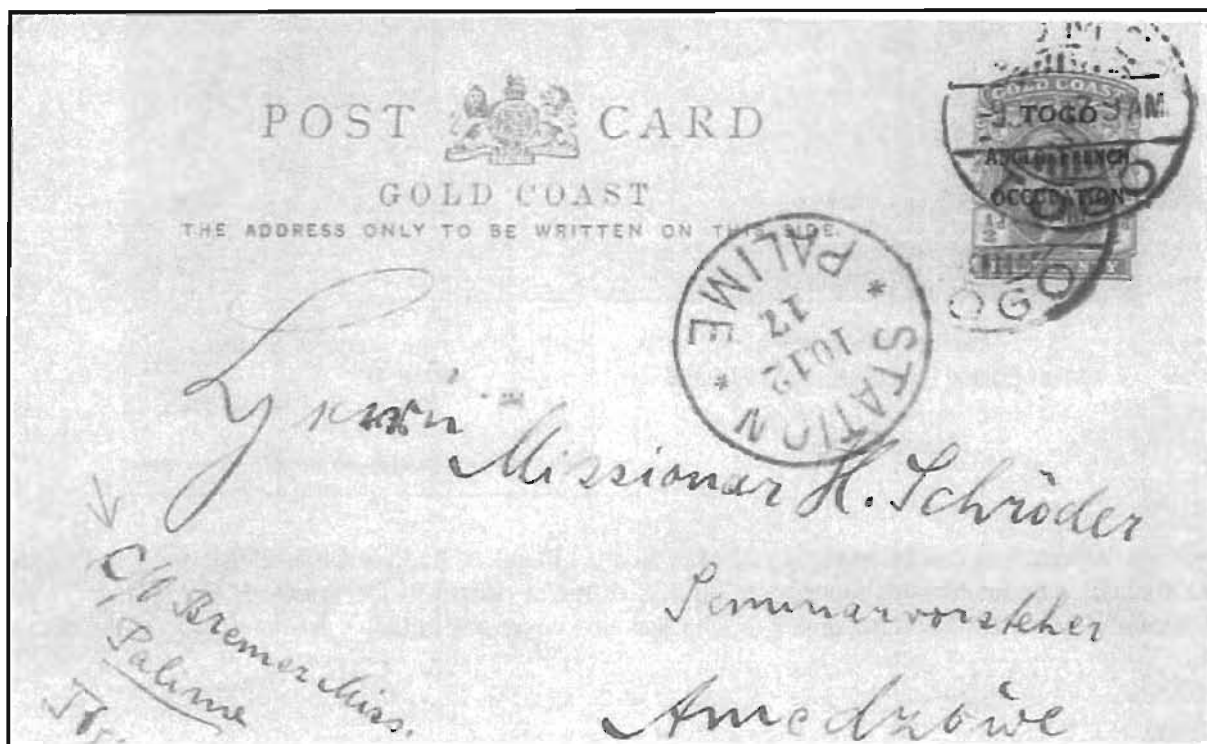 POST CARD
GOLD COAST
THE ADDRESS ONLY TO BE WRITTEN ON THIS SIDE.
GOLD COAST
TOGO
ANGLO-FRENCH
OCCUPATION
AM.
TOGO
OGO
* STATION * PALIME
10 12
17
Herrn
Missionar H. Schröder
Seminarvorsteher
Amedzowe
C/o Bremer Miss.
Palime